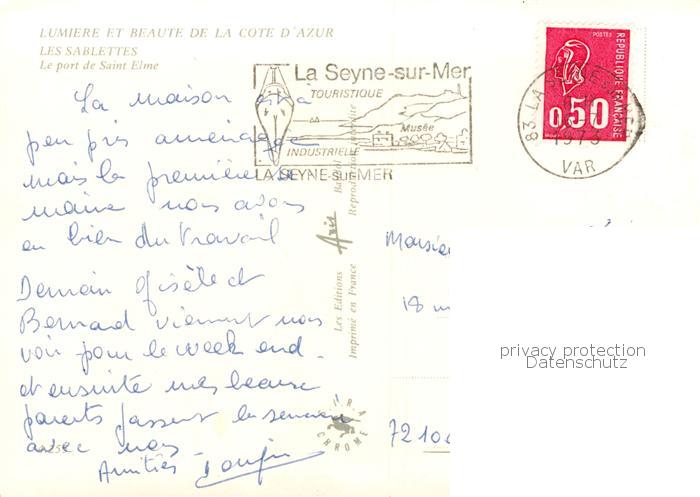 LUMIERE ET BEAUTE DE LA COTE D'AZUR
LES SABLETTES
Le port de Saint Elme
La Seyne-sur-Mer
TOURISTIQUE
Musée
INDUSTRIELLE
LA SEYNE-sur-MER
POSTES
REPUBLIQUE FRANÇAISE
0,50
83 LA
VAR
La maison est à
peu près aménagée
mais la première
maine nous avons
eu bien du travail
Demain Gisèle et
Bernard viennent nous
voir pour le week end.
et ensuite mes beaux
parents passent la semaine
avec nous
Amitiés
Les Editions
Imprimé en France
Reproduction
Monsieu
18
72100
CHROME
privacy protection
Datenschutz